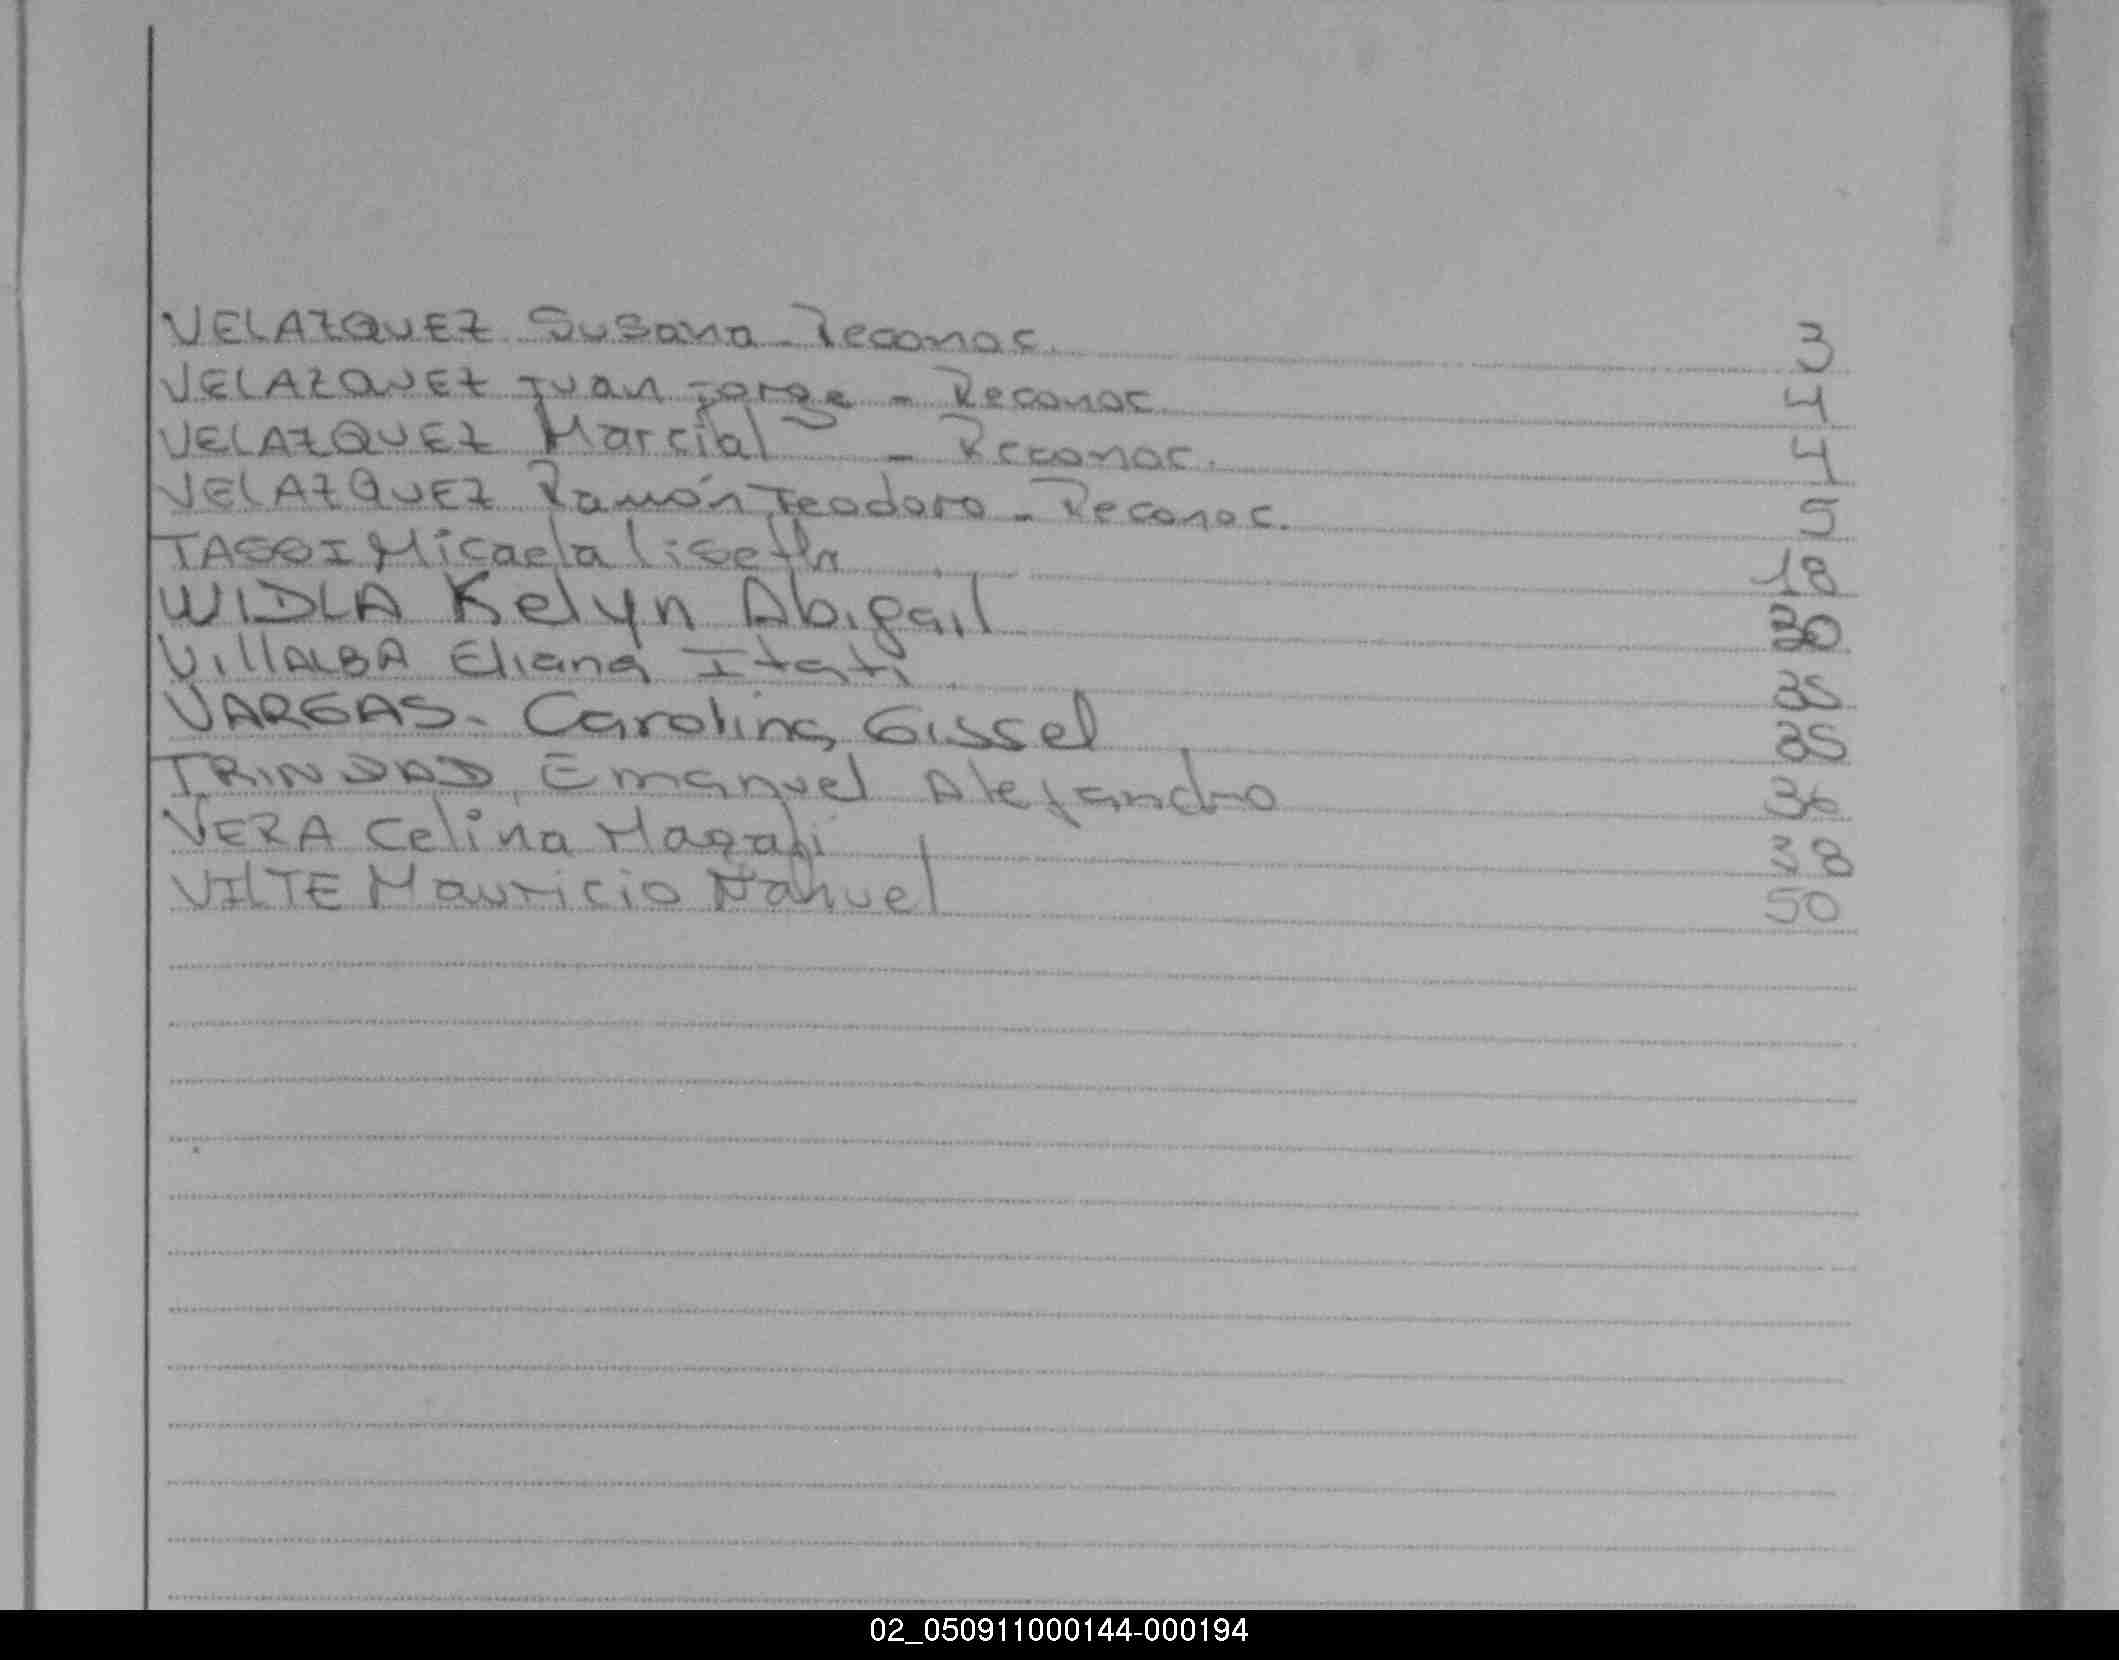 VELAZQUEZ Susana - Reconoc. 3
VELAZQUEZ Juan Jorge - Reconoc. 4
VELAZQUEZ Marcial - Reconoc. 4
VELAZQUEZ Ramón Teodoro - Reconoc. 5
Micaela Liseth 18
WIDLA Kelyn Abigail 30
VillALBA Eliana Itati 35
VARGAS. Carolina Gissel 35
TRINDAD, Emanuel Alejandro 36
VERA Celina Magali 38
VILTE Mauricio Nahuel 50
02_050911000144-000194